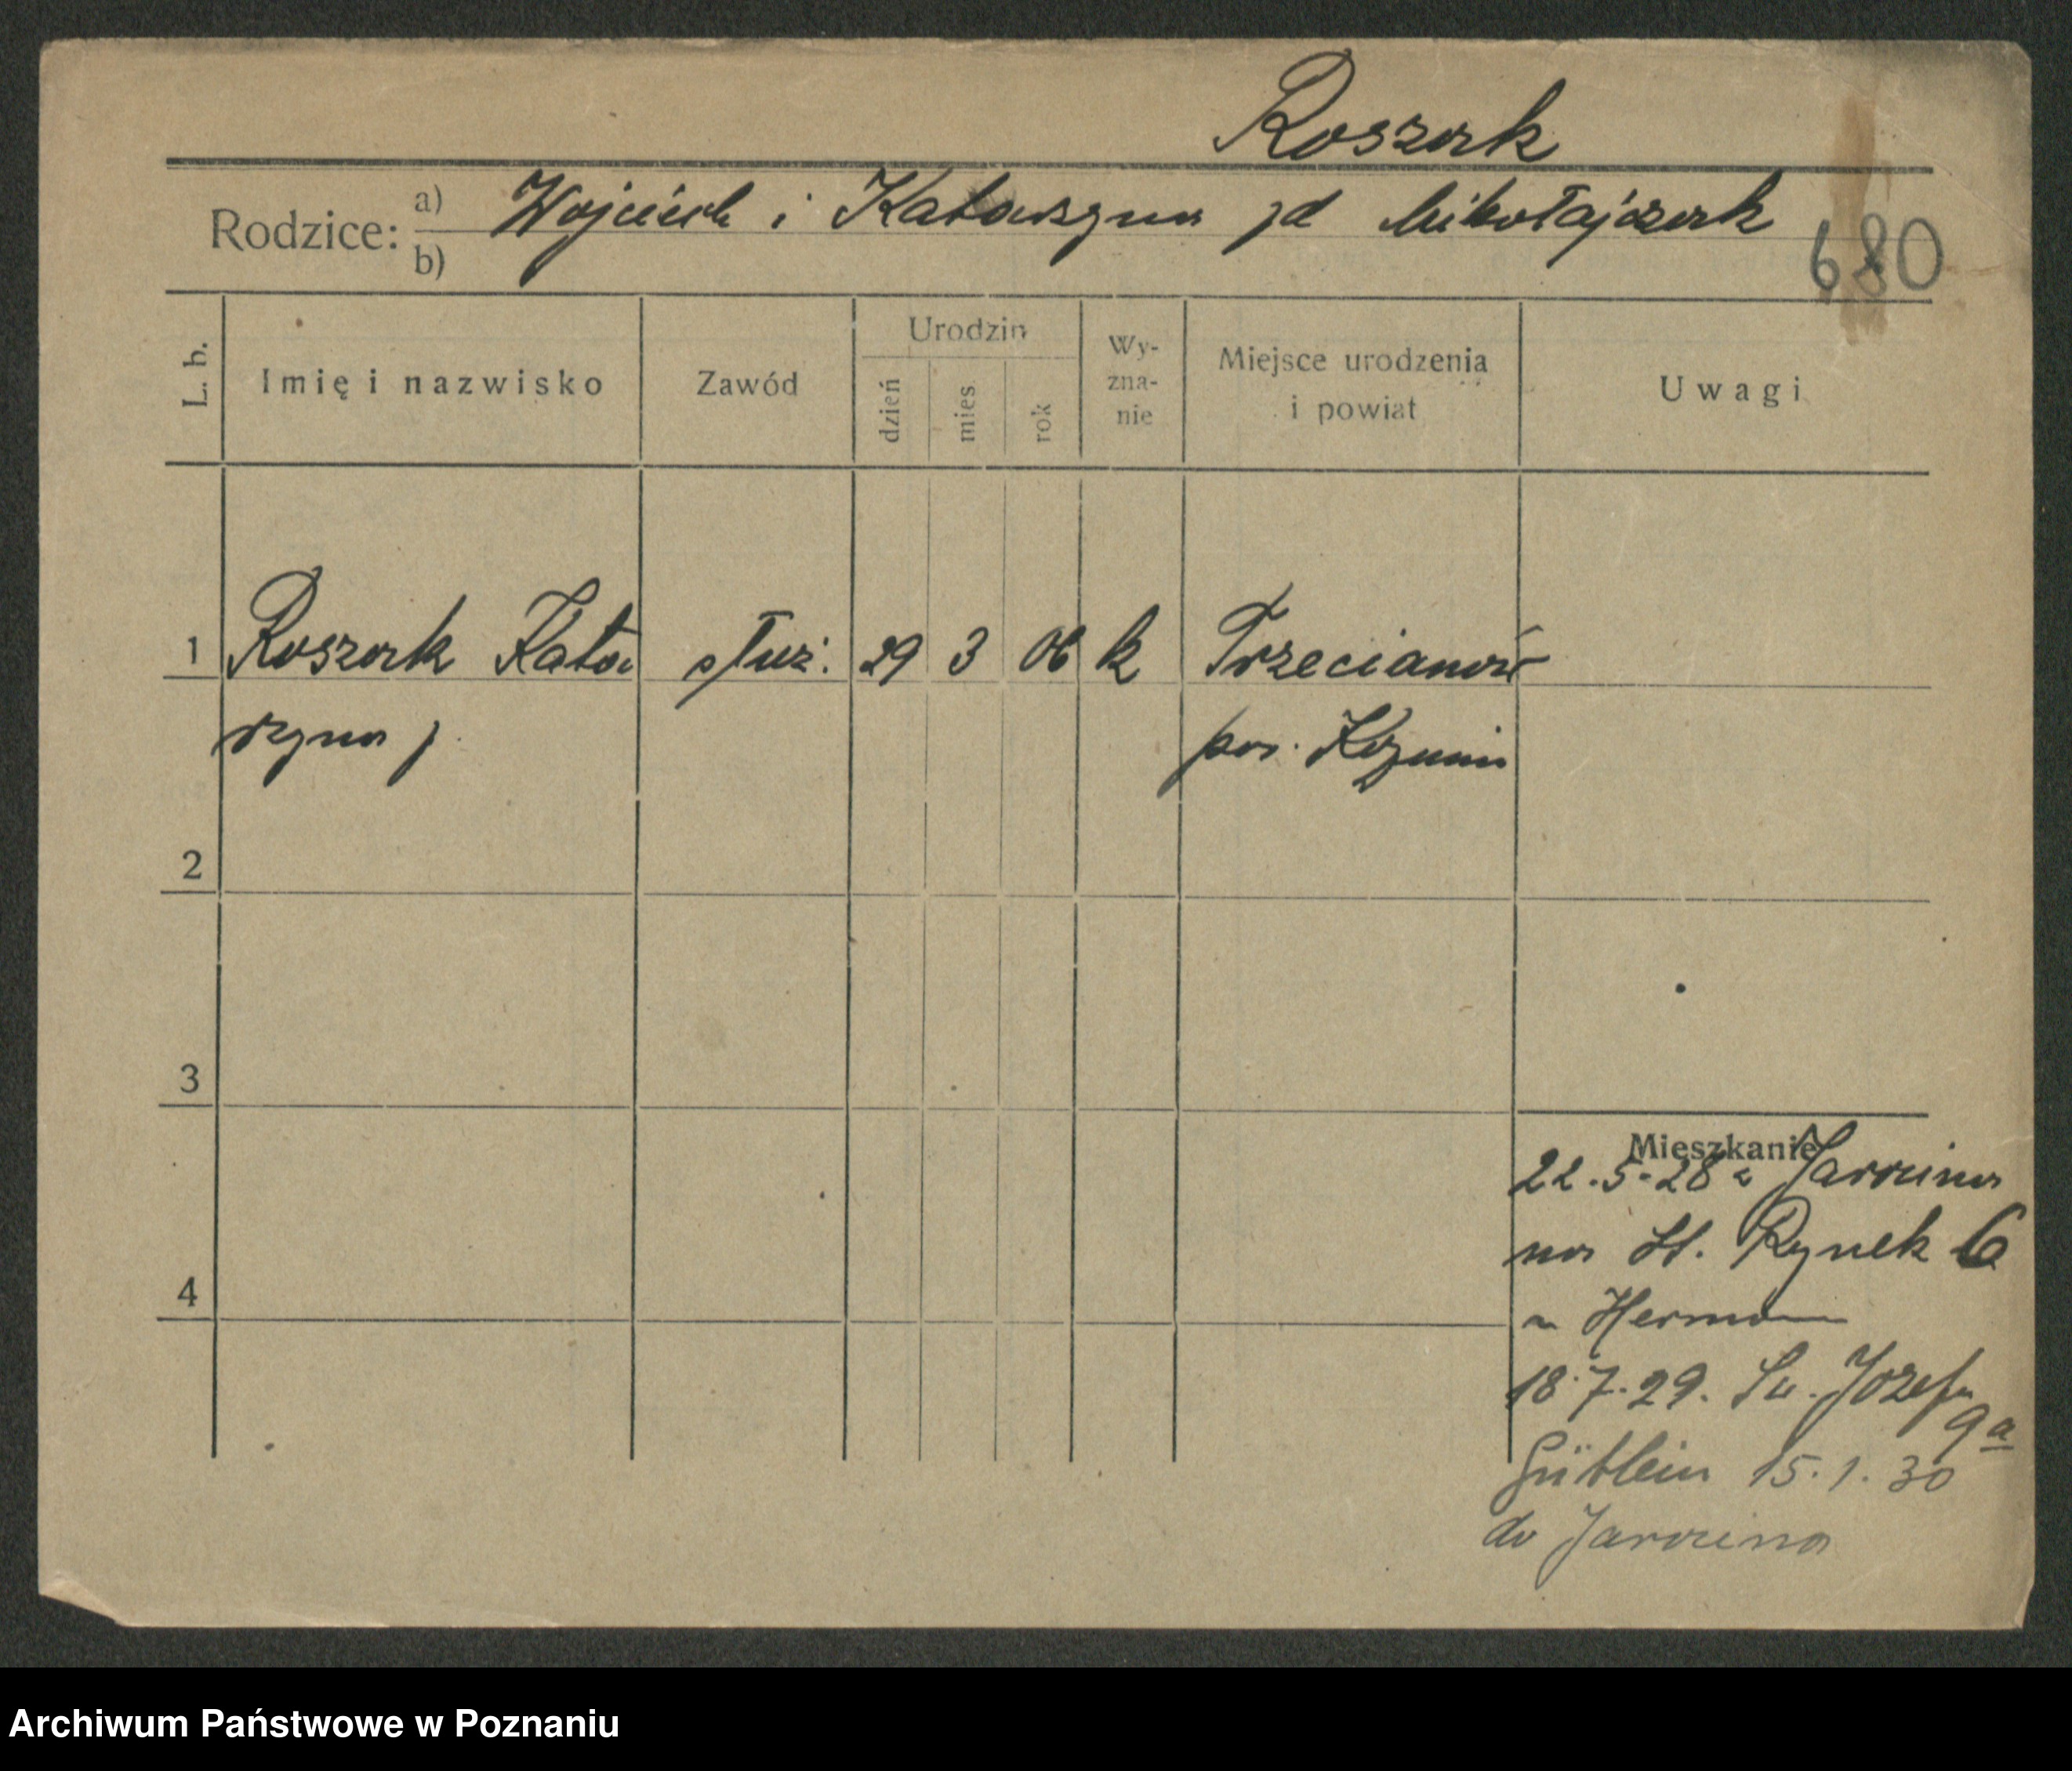 Roszak
Rodzice: a) Wojciech i Katarzyna zd Mikołajczak
b)
680
L. b. Imię i nazwisko Zawód Urodzin dzień mies rok Wy-zna-nie Miejsce urodzenia i powiat Uwagi
1 Roszak Kata służ. 29 3 06 k Trzecianów
rzyna pow. Koźmin
2
3
4
Mieszkanie
22.5.28 z Jarocina
na St. Rynek 6
u Herman
18.7.29. Św. Józefa
9a
15.1.30
do Jarocina
Archiwum Państwowe w Poznaniu